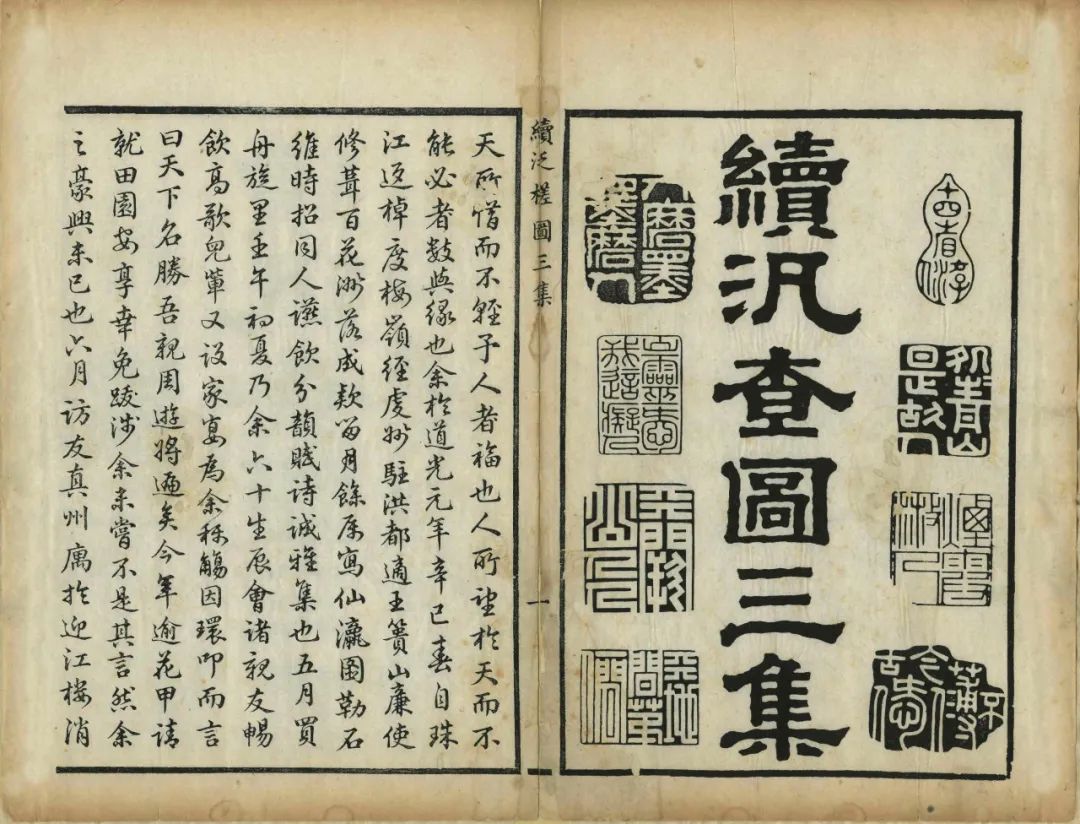 續汎查圖三集
磨墨墨磨人
續泛槎圖三集
一
天所惜而不輕予人者福也人所望於天而不
能必者數與緣也余於道光元年辛巳春自珠
江返棹度梅嶺經虔州駐洪都適王簣山廉使
修葺百花洲落成款留月餘屬寫仙瀛圖勒石
維時招同人讌飲分韻賦詩誠雅集也五月買
舟旋里壬午初夏乃余六十生辰會諸親友暢
飲高歌兒輩又設家宴為余稱觴因環叩而言
曰天下名勝吾親周遊將遍矣今年逾花甲請
就田園安享幸免跋涉余未嘗不是其言然余
之豪興未已也六月訪友真州寓於迎江樓消